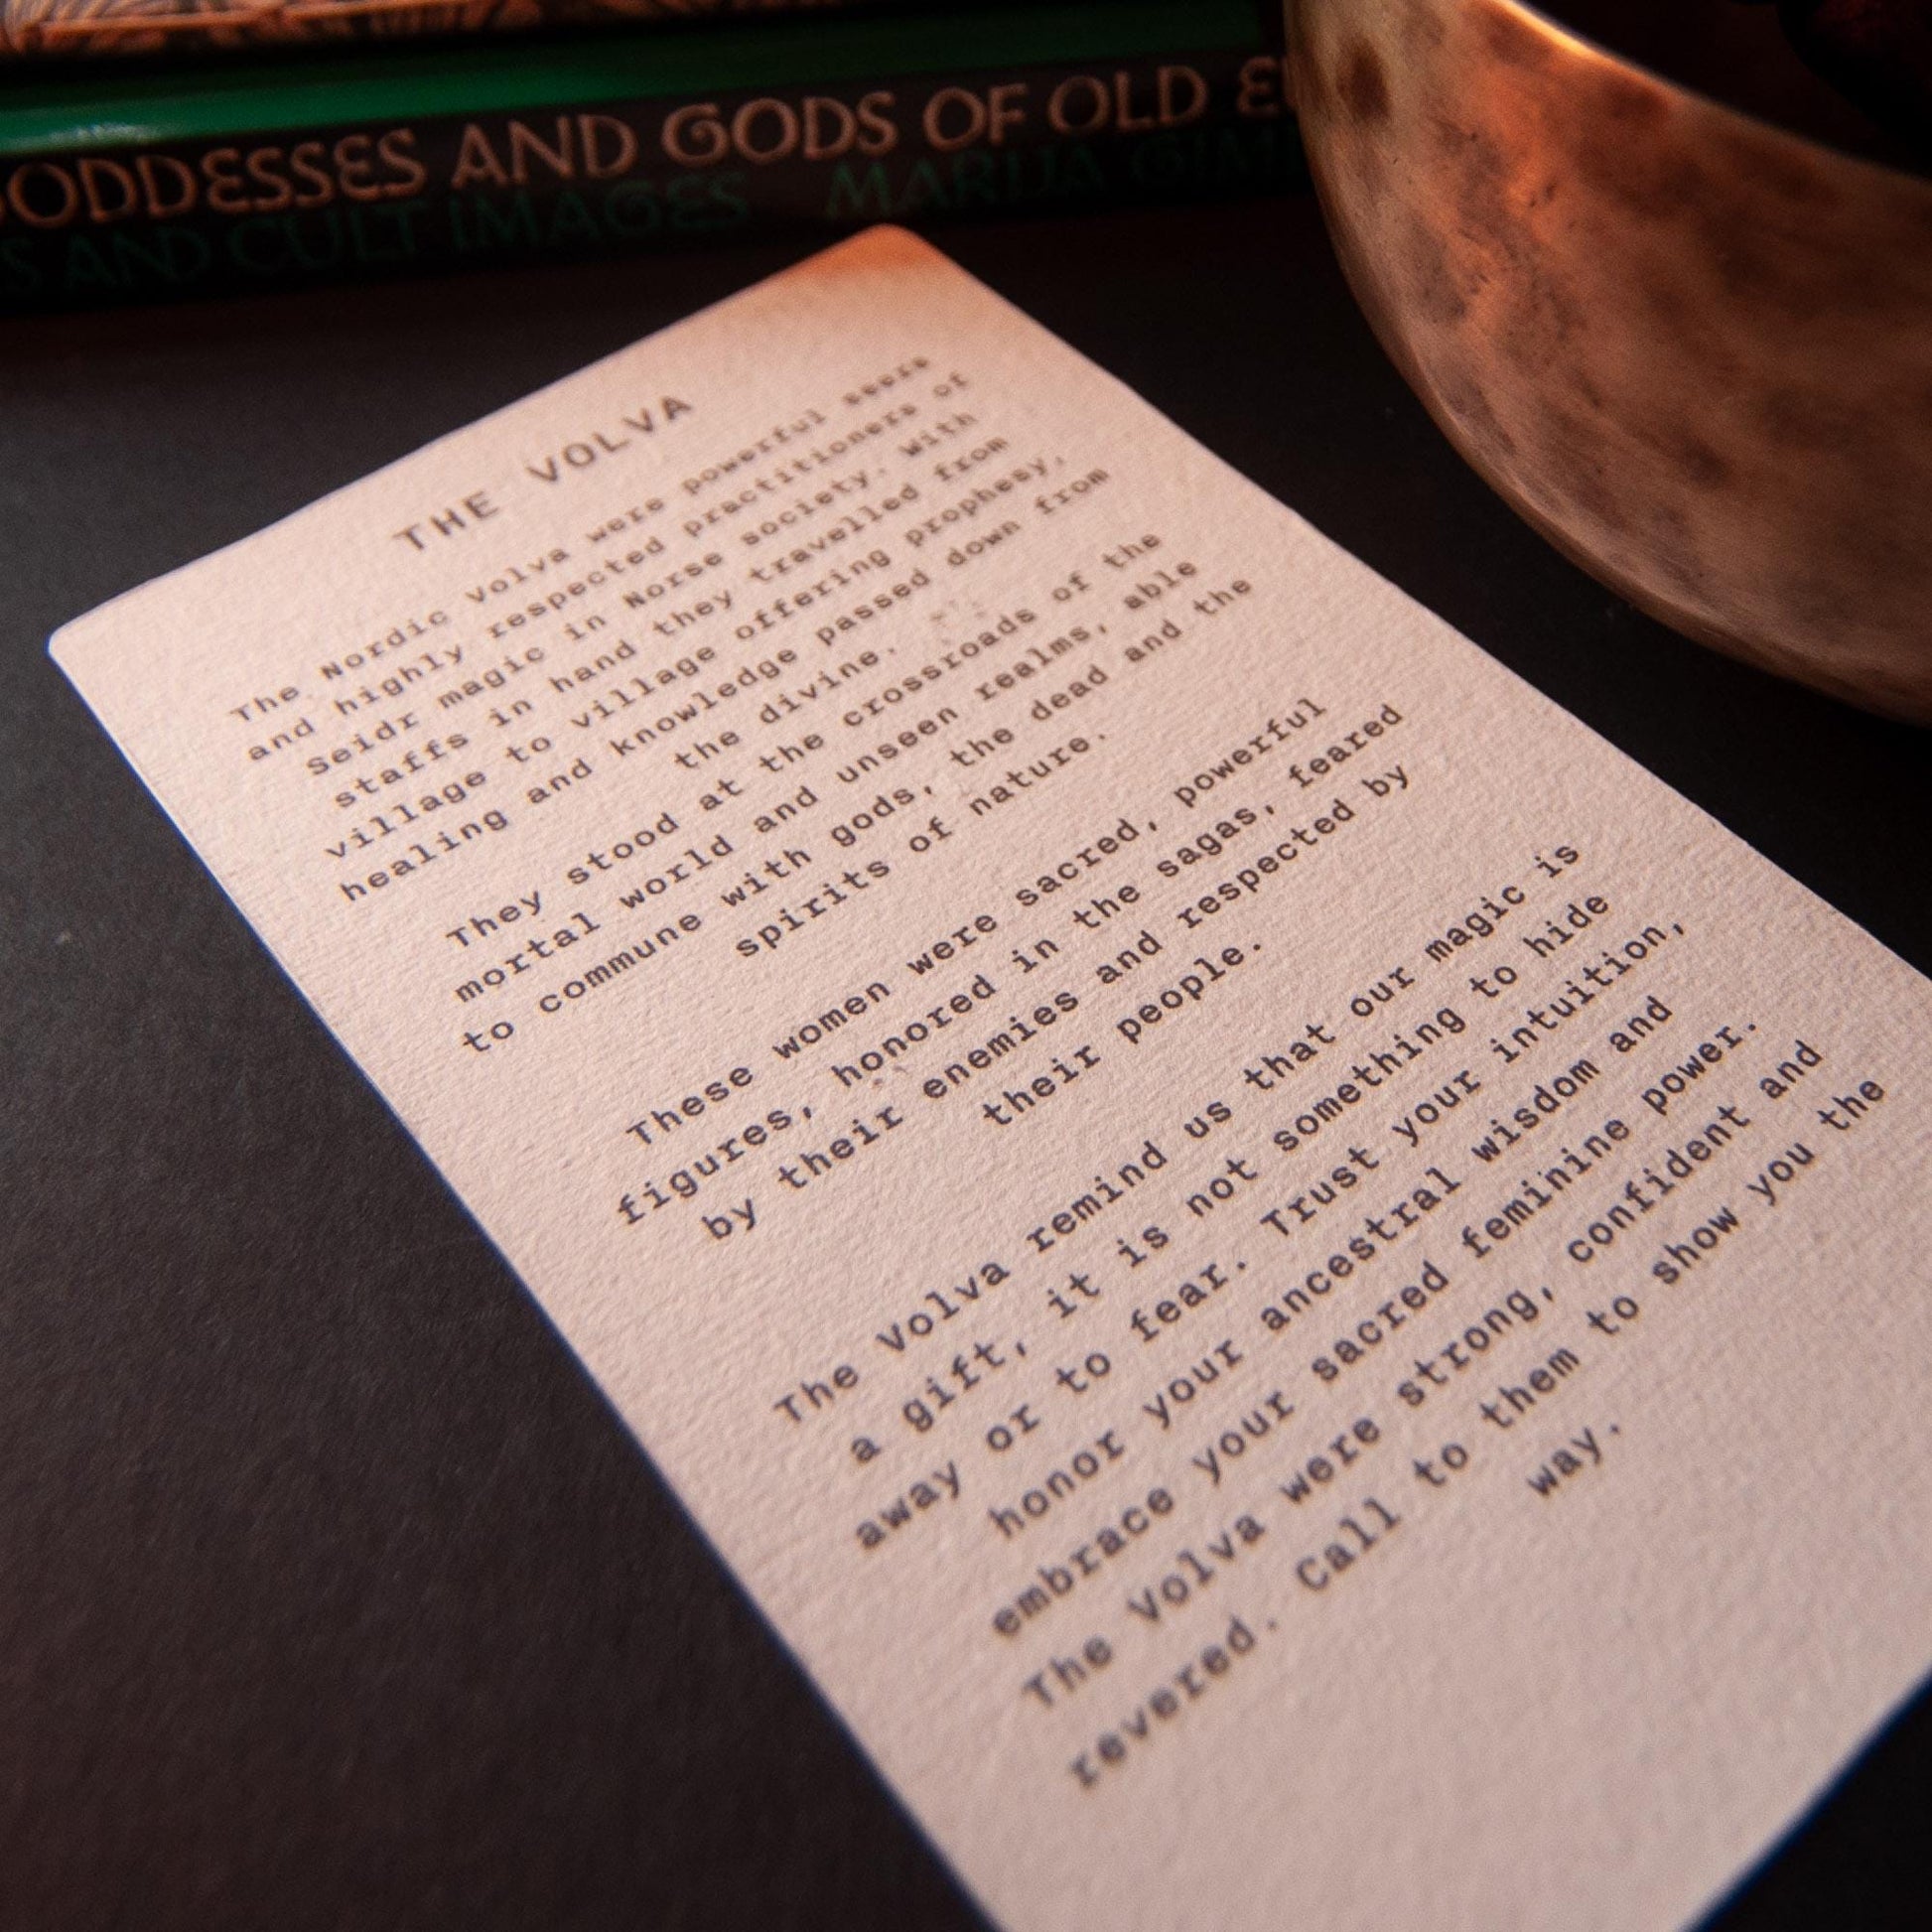 ODDESSES AND GODS OF OLD EU
S AND CULT IMAGES MARIJA GIM
THE VOLVA
The Nordic Volva were powerful seers
and highly respected practitioners of
Seidr magic in Norse society. With
staffs in hand they travelled from
village to village offering prophesy,
healing and knowledge passed down from
the divine.
They stood at the crossroads of the
mortal world and unseen realms, able
to commune with gods, the dead and the
spirits of nature.
These women were sacred, powerful
figures, honored in the sagas, feared
by their enemies and respected by
their people.
The Volva remind us that our magic is
a gift, it is not something to hide
away or to fear. Trust your intuition,
honor your ancestral wisdom and
embrace your sacred feminine power.
The Volva were strong, confident and
revered. Call to them to show you the
way.